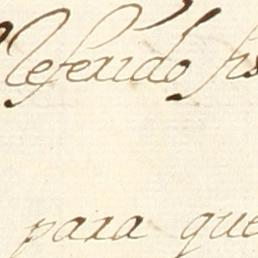 Referido
para que